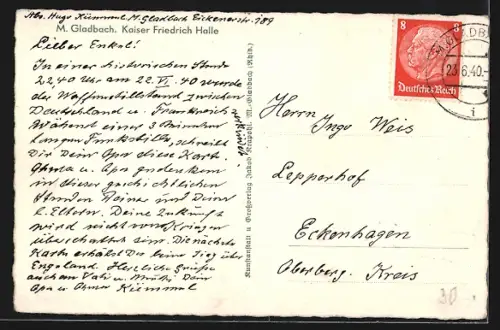 Abs. Hugo Kümmel M. Gladbach Eickenerstr. 189
M. Gladbach. Kaiser Friedrich Halle
Lieber Enkel!
In einer historischen Stunde
22,40 Uhr am 22. VI. 40 wurde
der Waffenstillstand zwischen
Deutschland u. Frankreich
verkündet.
Während einer 3 Minuten
langen Funkstille, schreibt
Dir Dein Opa diese Kart.
Ohma u. Opa gedenken
in dieser geschichtlichen
Stunden Deiner und Deiner
l. Eltern. Deine Zukunft
wird nicht von Kriegen
überschattet sein. Die nächste
Karte erhälst Du beim Sieg über
Engeland. Herzliche Grüße
auch an Vati u. Mutti Dein
Opa u. Ohma Kümmel
Kunstanstalt u. Großverlag Jakob Krapohl, M.-Gladbach (Rhld.)
8 8
Deutsches Reich
GLADB
23.6.40.-
i
Herrn
Ingo Weis
Lepperhof
Eckenhagen
Oberberg. Kreis
30